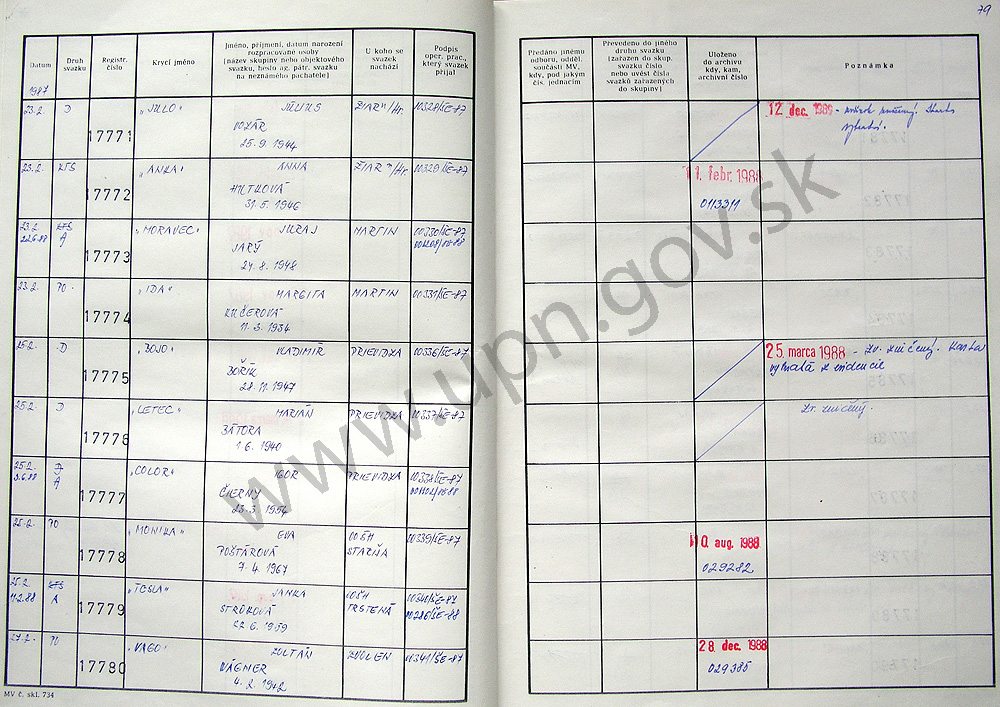 79
Datum
Druh svazku
Registr. číslo
Krycí jméno
Jméno, příjmení, datum narození
rozpracované osoby
(název skupiny nebo objektového
svazku, heslo ag. pátr. svazku
na neznámého pachatele)
U koho se
svazek
nachází
Podpis
oper. prac.,
který svazek
přijal
Předáno jinému
odboru, odděl.
součásti MV,
kdy, pod jakým
čís. jednacím
Převedeno do jiného
druhu svazku
(zařazen do skup.
svazku číslo
nebo uvést čísla
svazků zařazených
do skupiny)
Uloženo
do archivu
kdy, kam,
archivní číslo
Poznámka
1987
23.2. D 17771 "JULO" JÚLIUS ŽIAR n/Hr. 00328/ŠE-87
25.9.1944
12. dec. 1989
23.2. KTS 17772 "ANKA" ANNA ŽIAR n/Hr 00329/ŠE-87
31.5.1946
11. febr. 1988
23.2. KTS 17773 "MORAVEC" JURAJ MARTIN 00330/ŠE-87
22.6.88 A JARÝ
24.8.1948
23.2. PO. 17774 "IDA" MARGITA MARTIN 00331/ŠE-87
KUČEROVÁ
11.3.1934
25.2. D 17775 "BOJO" VLADIMÍR PRIEVIDZA 00336/ŠE-87
BOŘÍK
28.11.1947
25. marca 1988 - Zv. zničený. Karta
vyňatá z evidencie
25.2. D 17776 "LETEC" MARIÁN PRIEVIDZA 00337/ŠE-87
BÁTORA
1.6.1940
Zv. zničený.
25.2. D 17777 "COLOR" IGOR PRIEVIDZA 00338/ŠE-87
3.6.88 A ČIERNY
23.3.1954
25.2. PO 17778 "MONIKA" EVA OOSH 00339/ŠE-87
POŠTÁROVÁ
7.4.1967
10. aug. 1988
029282
25.2. KTS 17779 "TESLA" JANKA TRSTENÁ
A 00286/ŠE-88
27.2. PO 17780 "VAGO" ZOLTÁN ZVOLEN 00341/ŠE-87
VÁGNER
4.2.1942
28 dec. 1988
029385
MV č. skl. 734
www.upn.gov.sk